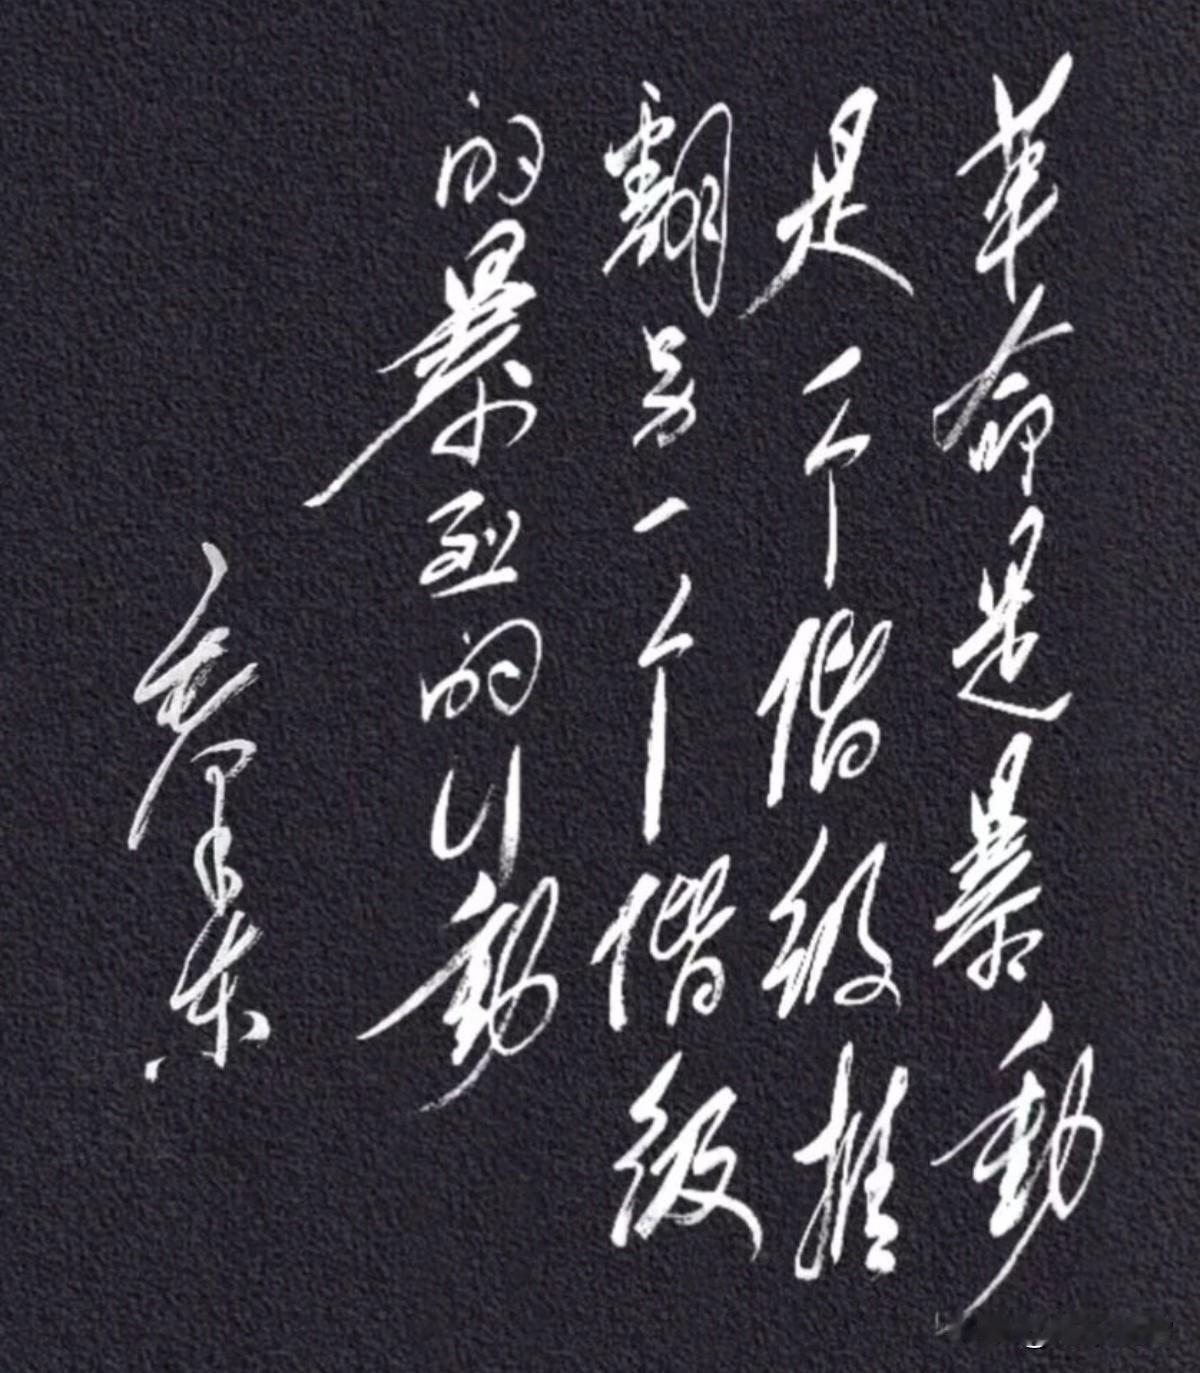 革命是暴動
是一个階級推
翻另一个階級
的暴烈的行動
毛澤東